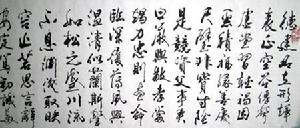 德建名立形端
表正空谷傳聲
虛堂習聽禍因
惡積福緣善慶
尺璧非寶寸陰
是競資父事君
曰嚴與敬孝當
竭力忠則盡命
臨深履薄夙興
溫凊似蘭斯馨
如松之盛川流
不息淵澄取映
容止若思言辭
安定篤初誠美